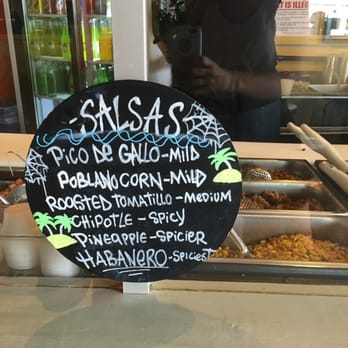 -SALSAS
Pico de GALLO-Mild
POBLANO CORN-Mild
ROOSTED TOMATILLO-MEDIUM
CHiPOTLE-SPiCY
PiNEAPPLE-SPiCiER
HABANERO-SPiCiEST
iS ILLEG